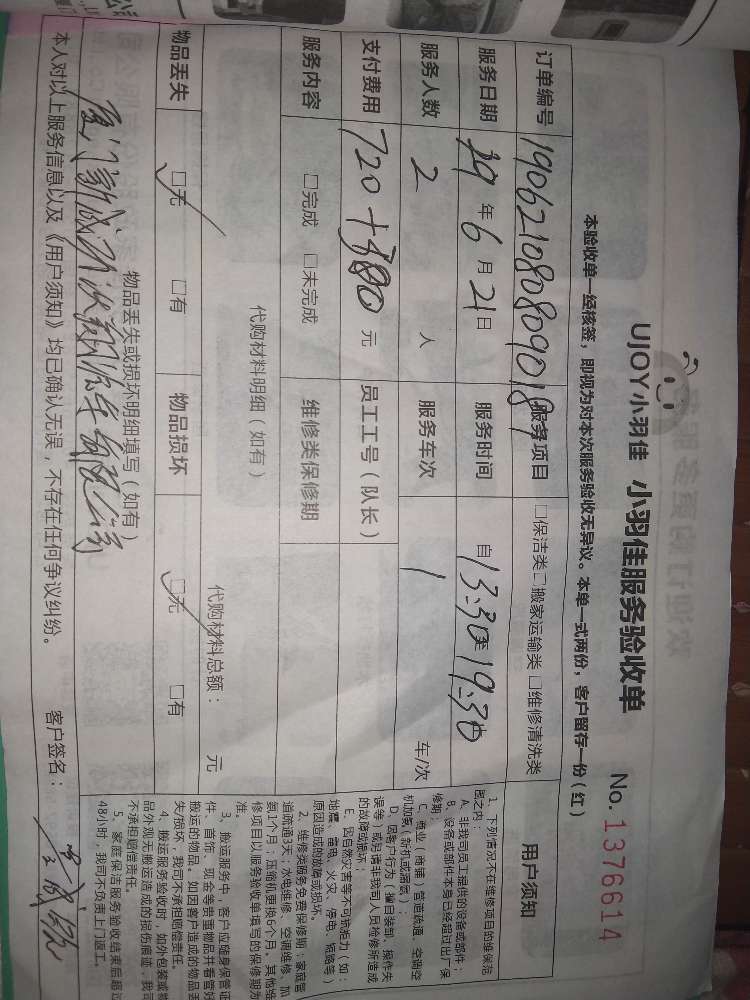 UJOY小羽佳 小羽佳服务验收单
No. 1376614
本验收单一经核签，即视为对本次服务验收无异议。本单一式两份，客户留存一份（红）
订单编号 190621080809018 服务项目 □保洁类□搬家运输类 □维修清洗类
服务日期 19年6月21日 服务时间 自13:30至19:30
服务人数 2 人 服务车次 1 车/次
支付费用 720+380 元 员工工号（队长）
服务内容 □完成 □未完成 维修类保修期
代购材料明细（如有） 代购材料总额： 元
物品丢失 □无 □有 物品损坏 □无 □有
物品丢失或损坏明细填写（如有）
本人对以上服务信息以及《用户须知》均已确认无误，不存在任何争议纠纷。 客户签名：
用户须知
1、下列情况不在维修项目的维保范
围之内：
A、非我司员工提供的设备或部件；
B、设备或部件本身已经超过出厂保
修期；
C、商业（商铺）管道疏通、空调空
机加氟（新机或漏氟）；
D、因客户行为（擅自装卸、操作失
误等）或聘请非我司人员检修所造成
的故障或损坏；
E、因自然灾害等不可抗拒力（如：
地震、雷电、火灾、停电、短路等）
原因造成的故障或损坏。
2、维修类服务免费保修期：家庭管
道疏通3天；水电维修、空调维修、加
氟1个月；压缩机更换6个月。其他维
修项目以服务验收单填写的保修期为
准。
3、搬运服务中，客户应随身保管证
件、首饰、现金等贵重物品并看管好
搬运的物品。如因客户造成的物品丢
失/损坏，我司不承担赔偿责任。
4、搬运服务验收时，如外包装或物
品外观无搬运造成的损伤痕迹，我司
不承担赔偿责任。
5、家庭保洁服务验收结束后超过
48小时，我司不负责上门返工。